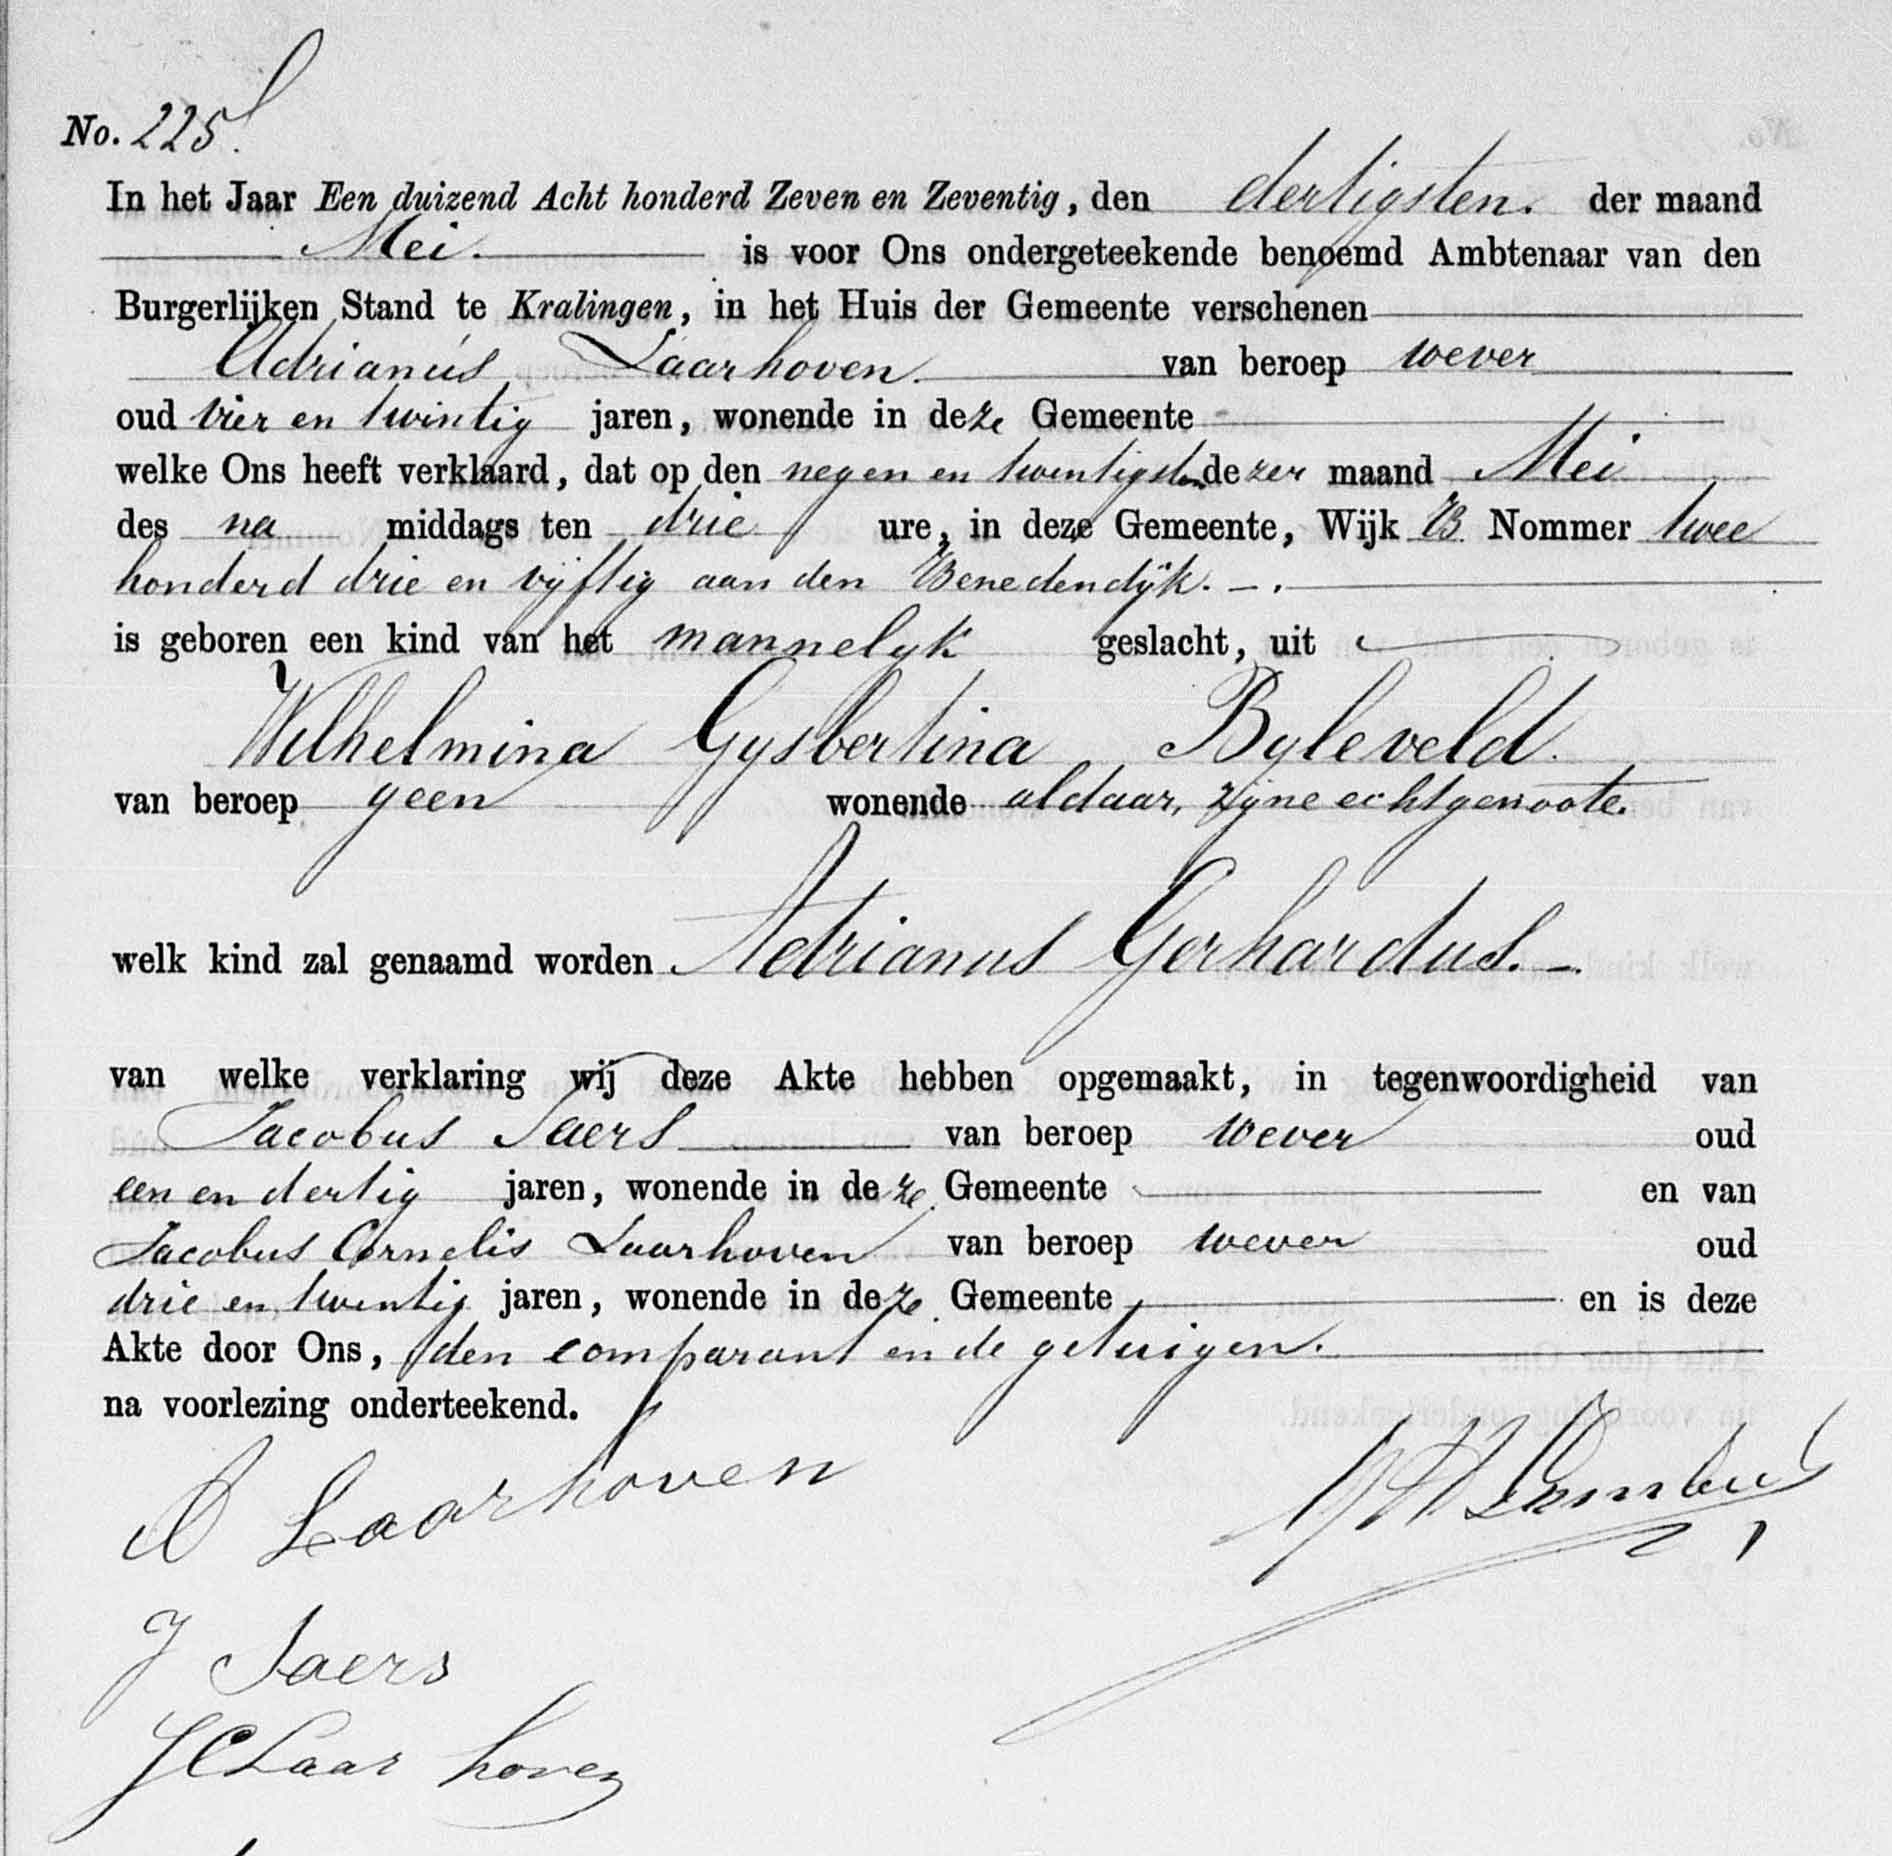 No. 225.
In het Jaar Een duizend Acht honderd Zeven en Zeventig, den dertigsten. der maand
Mei. is voor Ons ondergeteekende benoemd Ambtenaar van den
Burgerlijken Stand te Kralingen, in het Huis der Gemeente verschenen
Adrianus Laarhoven van beroep wever
oud vier en twintig jaren, wonende in deze Gemeente
welke Ons heeft verklaard, dat op den negen en twintigsten dezer maand Mei
des na middags ten drie ure, in deze Gemeente, Wijk B. Nommer twee
honderd drie en vijftig aan den Benedendijk. -.
is geboren een kind van het mannelyk geslacht, uit
Wilhelmina Gysbertina Byleveld.
van beroep geen wonende aldaar, zijne echtgenoote.
welk kind zal genaamd worden Adrianus Gerhardus. -.
van welke verklaring wij deze Akte hebben opgemaakt, in tegenwoordigheid van
Jacobus Saers van beroep wever oud
een en dertig jaren, wonende in deze Gemeente en van
Jacobus Cornelis Laarhoven van beroep wever oud
drie en twintig jaren, wonende in deze Gemeente en is deze
Akte door Ons, den comparant en de getuigen.
na voorlezing onderteekend.
A Laarhoven
J Saers
J C Laarhoven